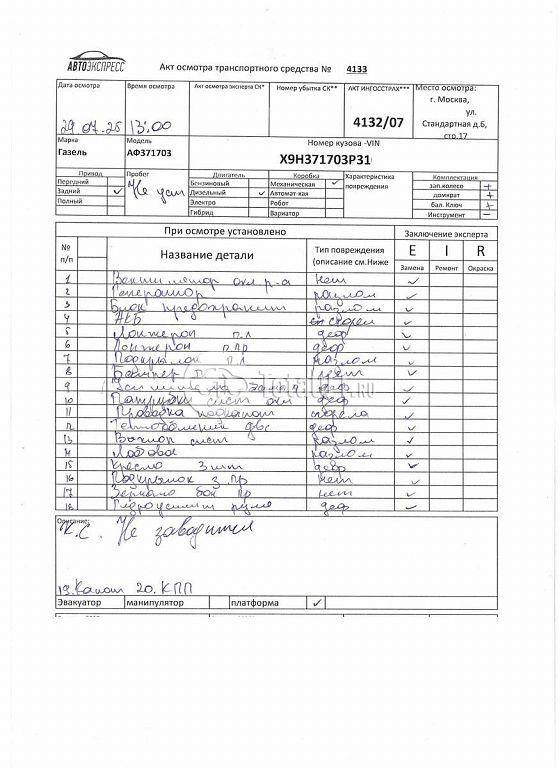 АВТОЭКСПРЕСС
Акт осмотра транспортного средства № 4133
Дата осмотра Время осмотра Акт осмотра эксперта СК* Номер убытка СК** АКТ ИНГОССТРАХ*** Место осмотра:
29.07.25 13:00 4132/07 г. Москва,
ул.
Стандартная д.6,
стр.17
Марка Модель Номер кузова -VIN
Газель АФ371703 X9H371703P31
Привод Пробег Двигатель Коробка Характеристика повреждения Комплектация
Передний Не уст Бензиновый Механическая ✓ зап.колесо +
Задний ✓ Дизельный ✓ Автомат-кая домкрат +
Полный Электро Робот бал. Ключ +
Гибрид Вариатор Инструмент –
При осмотре установлено Заключение эксперта
№ п/п Название детали Тип повреждения (описание см.Ниже E I R
Замена Ремонт Окраска
1 Вентилятор охл р-а нет ✓
2 Генератор разлом ✓
3 Блок предохранит разлом ✓
4 АКБ ✓
5 Лонжерон п.л деф ✓
6 Лонжерон п.пр деф ✓
7 Подкрылок п л разлом ✓
8 Бампер п нет ✓
9 деф ✓
10 Патрубки сист охл деф ✓
11 Проводка подкапот ✓
12 двс деф ✓
13 Выхлоп сист разлом ✓
14 разлом ✓
15 Кресло 3 шт деф ✓
16 Подкрылок з.пр нет ✓
17 Зеркало бок пр нет ✓
18 Гидроусилит руля деф ✓
Описание:
К.С. Не заводится
19. Капот 20. КПП
Эвакуатор манипулятор платформа ✓